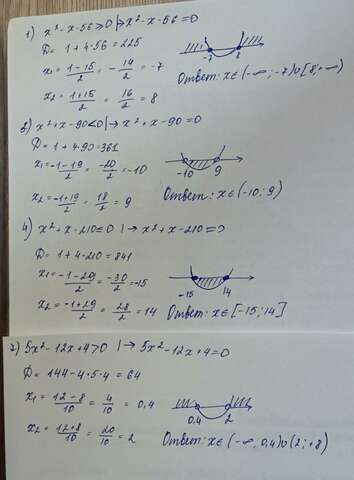 1) x² - x - 56 ≥ 0 | → x² - x - 56 = 0
D = 1 + 4·56 = 225
x₁ = (1 - 15)/2 = - 14/2 = -7
-7 8
x₂ = (1 + 15)/2 = 16/2 = 8
Ответ: x ∈ (-∞; -7) ∪ [8; +∞)
3) x² + x - 90 < 0 | → x² + x - 90 = 0
D = 1 + 4·90 = 361
x₁ = (-1 - 19)/2 = -20/2 = -10
-10 9
x₂ = (-1 + 19)/2 = 18/2 = 9
Ответ: x ∈ (-10; 9)
4) x² + x - 210 ≤ 0 | → x² + x - 210 = 0
D = 1 + 4·210 = 841
x₁ = (-1 - 29)/2 = -30/2 = -15
-15 14
x₂ = (-1 + 29)/2 = 28/2 = 14
Ответ: x ∈ [-15; 14]
2) 5x² - 12x + 4 > 0 | → 5x² - 12x + 4 = 0
D = 144 - 4·5·4 = 64
x₁ = (12 - 8)/10 = 4/10 = 0,4
0,4 2
x₂ = (12 + 8)/10 = 20/10 = 2
Ответ: x ∈ (-∞, 0,4) ∪ (2; +8)